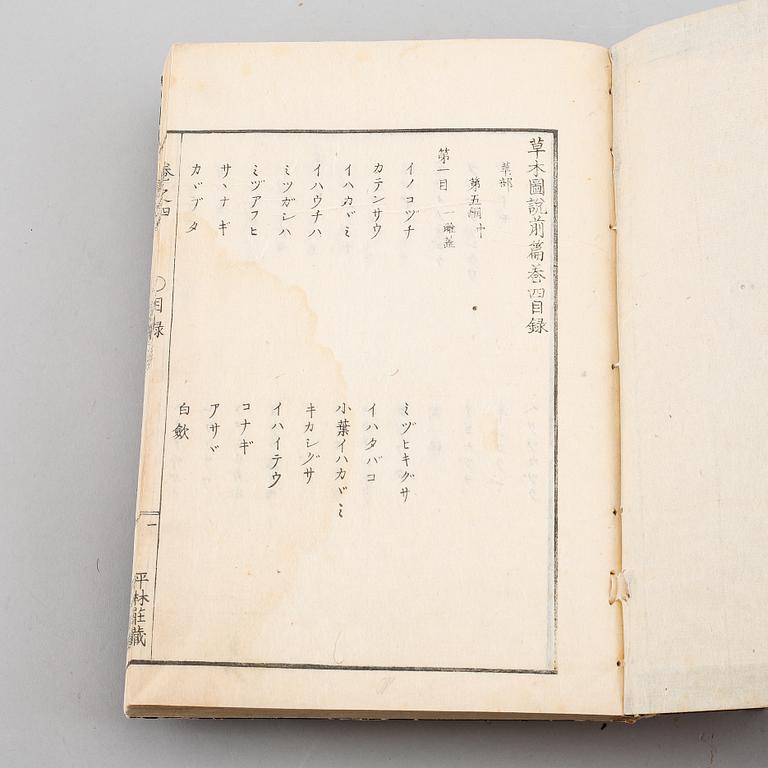 草木圖說前篇卷四目録
草部
第五綱中
第一目 一雌蕊
イノコヅチ ミヅヒキグサ
カテンサウ イハタバコ
イハカヾミ 小葉イハカヾミ
イハウチハ キカシグサ
ミツガシハ イハイテウ
ミヅアフヒ コナギ
サヽナギ アサヾ
カヾブタ 白歛
卷之四 〇目録 一 平林莊藏